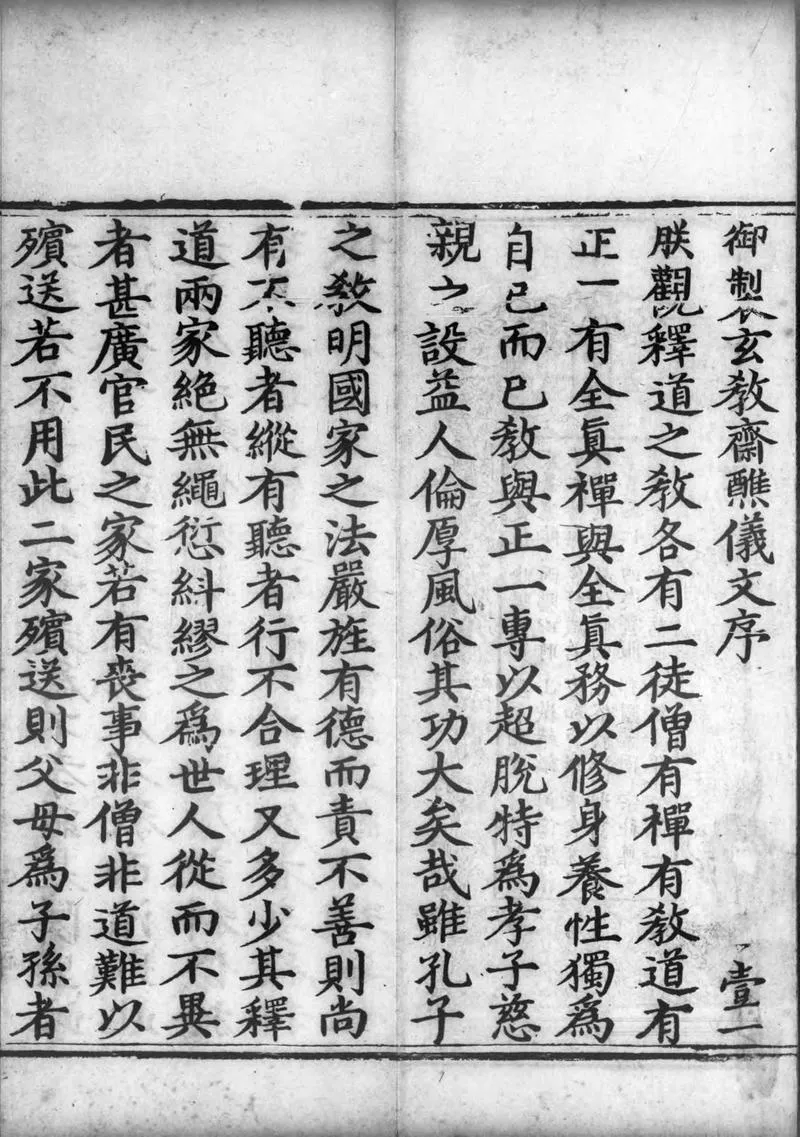 御製玄教齋醮儀文序 壹一
朕觀釋道之教各有二徒僧有禪有教道有
正一有全眞禪與全眞務以修身養性獨爲
自已而已教與正一專以超脫特爲孝子慈
親之設益人倫厚風俗其功大矣哉雖孔子
之教明國家之法嚴旌有德而責不善則尚
有不聽者縱有聽者行不合理又多少其釋
道兩家絶無繩愆糾繆之爲世人從而不異
者甚廣官民之家若有喪事非僧非道難以
殯送若不用此二家殯送則父母爲子孫者